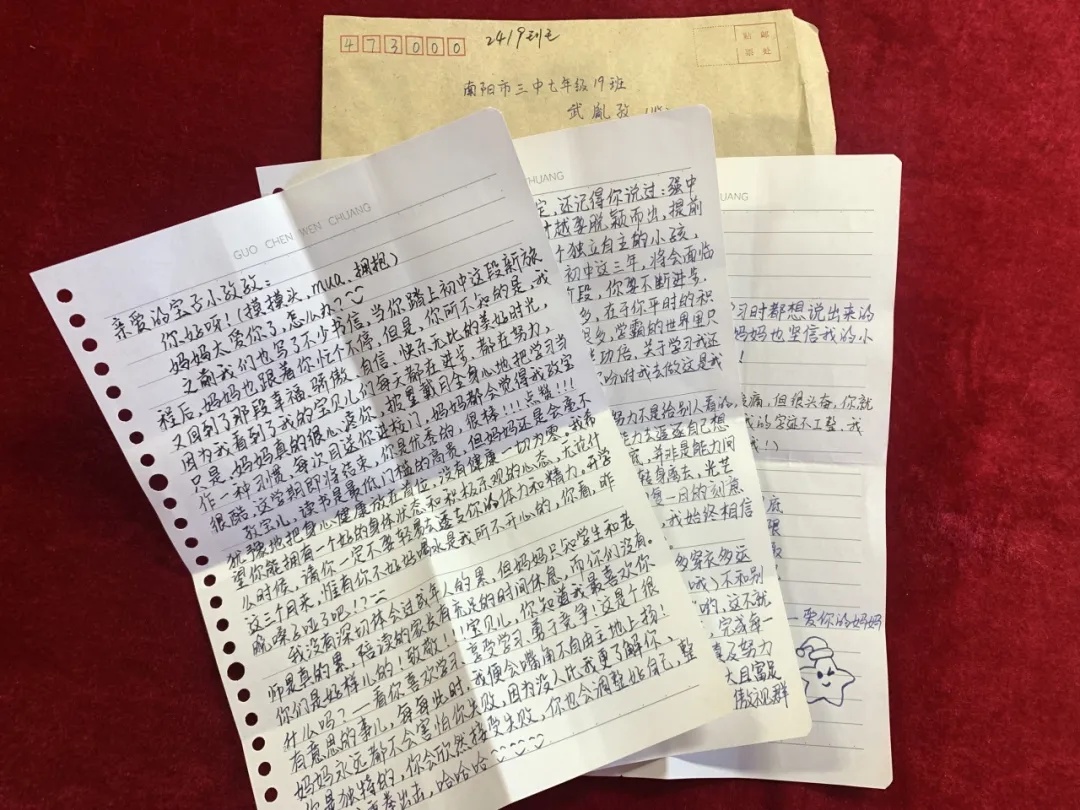 473000
2419
贴邮
票处
南阳市三中七年级19班
武胤孜
GUO CHEN WEN CHUANG
亲爱的宝子小孜孜:
你好呀!(摸摸头,mua.拥抱)
妈妈太爱你了,怎么办?
之前我们也写了不少书信,当你踏上初中这段新旅
程后,妈妈也跟着你忙个不停,但是,你所不知的是,我
又回到了那段幸福、骄傲、自信、快乐无比的美好时光,
因为我看到了我的宝贝儿们每天都在进步、都在努力,
只是,妈妈真的很心疼你,披星戴月全身心地把学习当
作一种习惯,每次目送你进校门,妈妈都会觉得我孜宝
很酷,这学期即将结束,你是优秀的,很棒!!!点赞!!!
孜宝儿,读书是最低门槛的高贵,但妈妈还是会毫不
犹豫地把身心健康放在首位,没有健康一切为零。我希
望你能拥有一个好的身体状态和积极乐观的心态,无论什
么时候,请你一定不要轻易去透支你的体力和精力。开学
这三个月来,惟有你不好好喝水是我所不开心的,你看,昨
晚嗓子哑了吧!?
我没有深切体会过成年人的累,但妈妈只知学生和老
师是真的累,陪读的家长有充足的时间休息,而你们没有。
你们是好样儿的!致敬!!宝贝儿,你知道我最喜欢你
什么吗?—看你喜欢学习、享受学习、勇于竞争!这是个很
有意思的事儿,每每此时,我便会嘴角不自由主地上扬!
妈妈永远都不会害怕你失败,因为没人比我更了解你,
你是独特的,你会欣然接受失败,你也会调整好自己,整
出击,哈哈哈
HUANG
定,还记得你说过:强中
越要脱颖而出,提前
个独立自主的小孩,
初中这三年,将会面临
阶段,你要不断进步.
在于你平时的积
学霸的世界里只
功倍,关于学习我还
时我去做这是我
努力不是给别人看的,
能力去逼逼自己想
并非是能力问
转身离去,光芒
每一日的刻意
我始终相信
多穿衣多运
哦)不和别
的,这不就
完成每一
努力
大且富足
傲视群
UANG
习时都想说出来的
妈妈也坚信我的小
!
痛,但很头昏,你就
我的字迹不工整,我
我!)
—爱你的妈妈